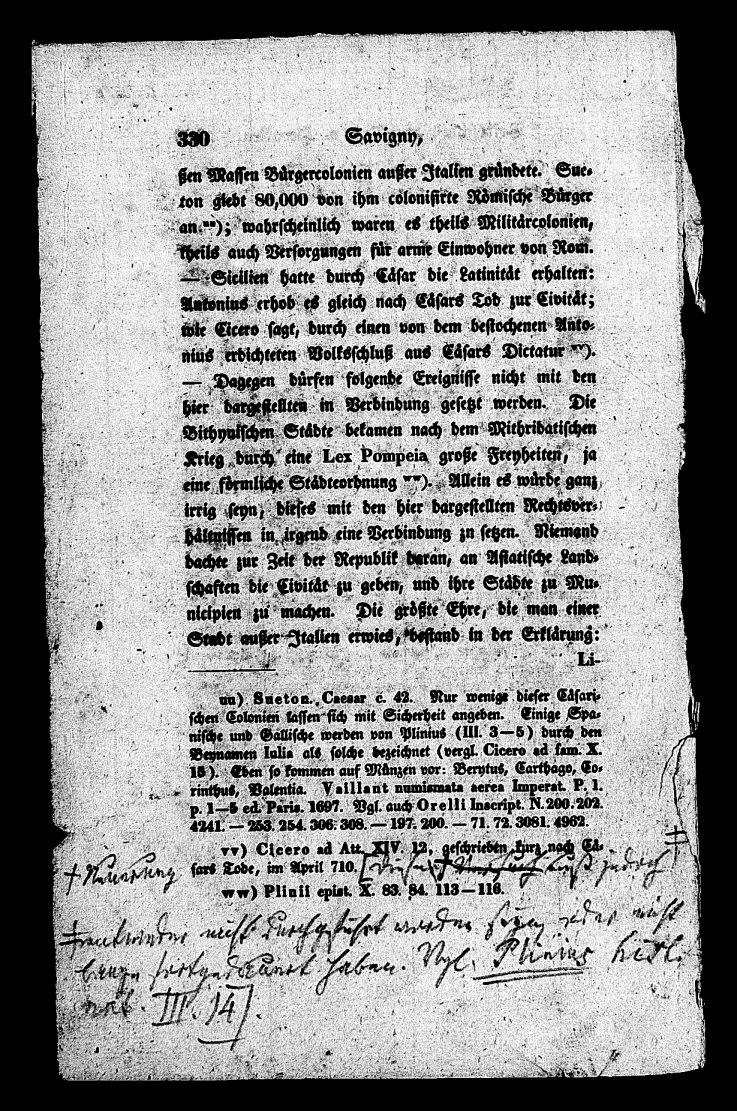 330 Savigny,
ßen Massen Bürgercolonien außer Italien gründete. Sue-
ton giebt 80,000 von ihm colonisirte Römische Bürger
an uu); wahrscheinlich waren es theils Militärcolonien,
theils auch Versorgungen für arme Einwohner von Rom.
— Sicilien hatte durch Cäsar die Latinität erhalten:
Antonius erhob es gleich nach Cäsars Tod zur Civität;
wie Cicero sagt, durch einen von dem bestochenen Anto-
nius erdichteten Volksschluß aus Cäsars Dictatur vv).
— Dagegen dürfen folgende Ereignisse nicht mit den
hier dargestellten in Verbindung gesetzt werden. Die
Bithynischen Städte bekamen nach dem Mithridatischen
Krieg durch eine Lex Pompeia große Freyheiten, ja
eine förmliche Städteordnung ww). Allein es würde ganz
irrig seyn, dieses mit den hier dargestellten Rechtsver-
hältnissen in irgend eine Verbindung zu setzen. Niemand
dachte zur Zeit der Republik daran, an Asiatische Land-
schaften die Civität zu geben, und ihre Städte zu Mu-
nicipien zu machen. Die größte Ehre, die man einer
Stadt außer Italien erwies, bestand in der Erklärung:
Li-
uu) Sueton. Caesar c. 42. Nur wenige dieser Cäsari-
schen Colonien lassen sich mit Sicherheit angeben. Einige Spa-
nische und Gallische werden von Plinius (III. 3—5) durch den
Beynamen Iulia als solche bezeichnet (vergl. Cicero ad fam. X.
15). Eben so kommen auf Münzen vor: Berytus, Carthago, Co-
rinthus, Valentia. Vaillant numismata aerea Imperat. P. 1.
p. 1—5 ed. Paris. 1697. Vgl. auch Orelli Inscript. N. 200. 202.
4241. — 253. 254. 306. 308. — 197. 200. — 71. 72. 3081. 4962.
vv) Cicero ad Att. XIV. 12, geschrieben kurz nach Cä-
sars Tode, im April 710. [Diese † Versuch muß jedoch ‡
† Neuerung
ww) Plinii epist. X. 83. 84. 113—116.
‡ entweder nicht durchgeführt worden seyn, oder nicht
lange fortgedauert haben. Vgl. Plinius hist.
nat. III. 14].